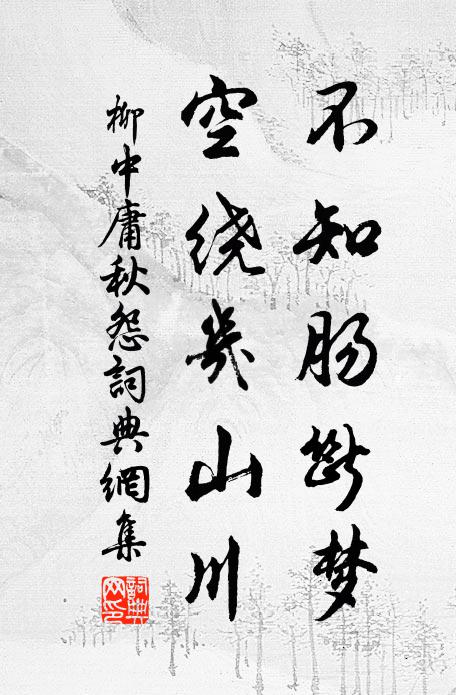 不知肠断梦
空绕几山川
柳中庸秋怨詞典網集
詞典网印